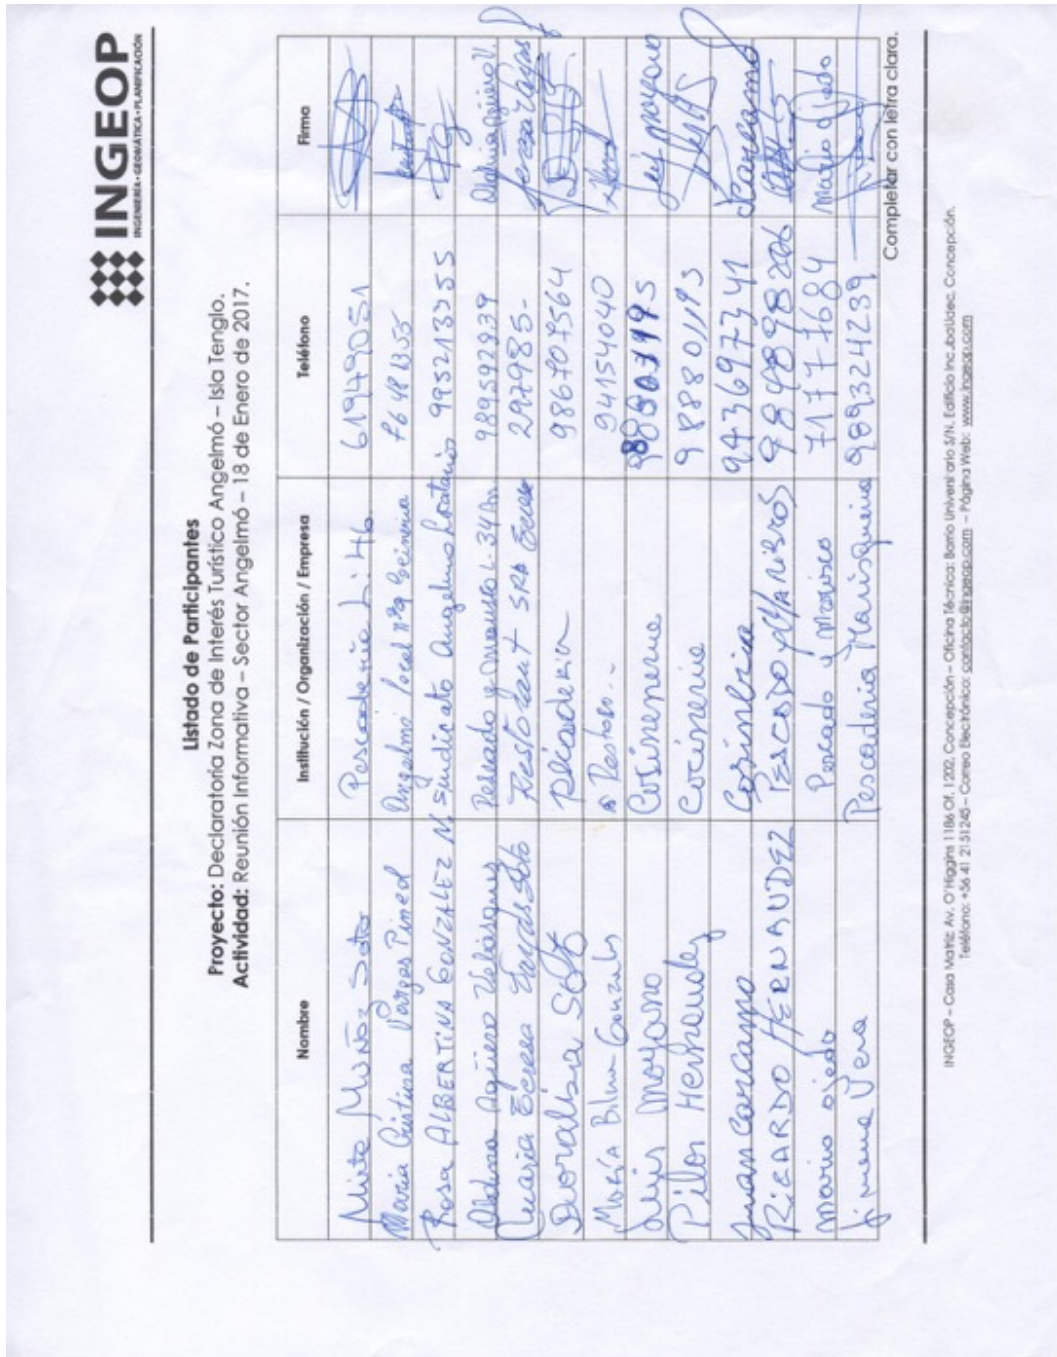 INGEOP
INGENIERÍA • GEOMÁTICA • PLANIFICACIÓN
Listado de Participantes
Proyecto: Declaratoria Zona de Interés Turístico Angelmó – Isla Tenglo.
Actividad: Reunión Informativa – Sector Angelmó – 18 de Enero de 2017.
Nombre Institución / Organización / Empresa Teléfono Firma
Mirta Muñoz Soto Pescaderia L: 46 61949051
Maria Cristina Vargas Pined Angelmó local nº9 76481355
Rosa ALBERTINA GONZALEZ N. Sindicato Angelmo 995213355
Agüero Velásquez Pescado L-34 989592939
Maria Soto Restorant 297985-
Doralisa Soto picaderia 986707564
María Gonzalez Restoro.. 94154040
Luis Moyano Cosineneria Luis moyano
Pilar Hernandez Cocineria 988801193
Juan Carcamo Cosineria 943697341 Jcarcamo
RICARDO HERNANDEZ PESCADO y MARISCOS 984898206
Mario ojeda Pescado y Marisco 71777684 Mario ojeda
Jimena Vera Pescaderia Marisqueria 989324239
Completar con letra clara.
INGEOP – Casa Matriz: Av. O'Higgins 1186 Of. 1202, Concepción – Oficina Técnica: Barrio Universitario S/N, Edificio IncubaUdec, Concepción.
Teléfono: +56 41 2151245 – Correo Electrónico: contacto@ingeop.com – Página Web: www.ingeop.com